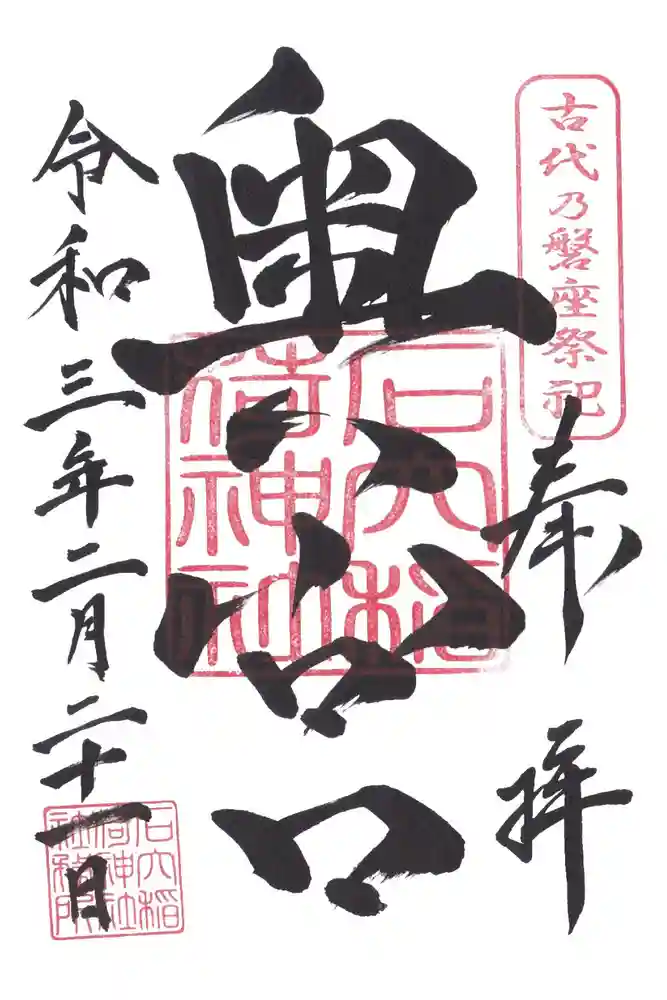 古代乃磐座祭祀
奉拝
奥宮
石穴稲荷神社
令和三年二月二十一日
石穴稲荷神社社務所